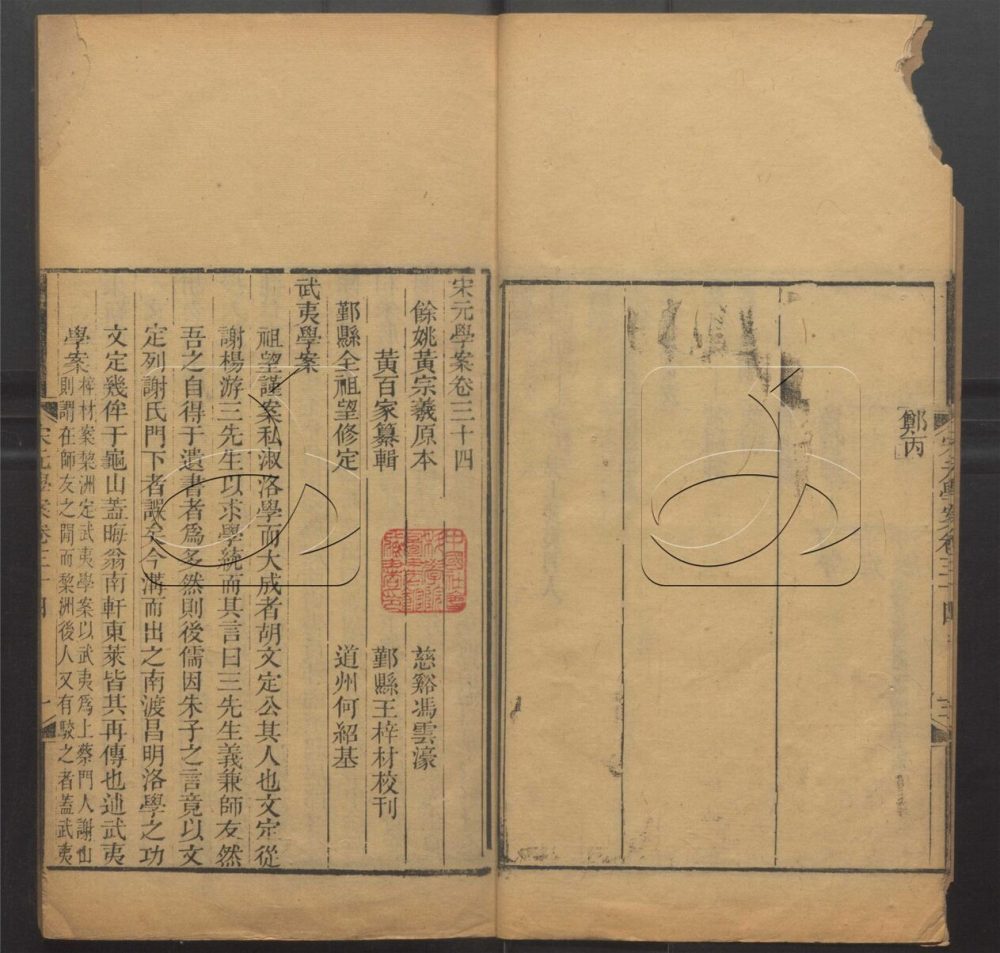 鄭丙
宋元學案卷三十四
餘姚黃宗羲原本
慈谿馮雲濠
黃百家纂輯
鄞縣王梓材校刊
鄞縣全祖望修定
道州何紹基
武夷學案
祖望謹案私淑洛學而大成者胡文定公其人也文定從
謝楊游三先生以求學統而其言曰三先生義兼師友然
吾之自得于遺書者爲多然則後儒因朱子之言竟以文
定列謝氏門下者誤矣今溝而出之南渡昌明洛學之功
文定幾侔于龜山蓋晦翁南軒東萊皆其再傳也述武夷
學案
梓材案棃洲定武夷學案以武夷爲上蔡門人謝山
則謂在師友之閒而棃洲後人又有駮之者蓋武夷
宋元學案卷三十四
一